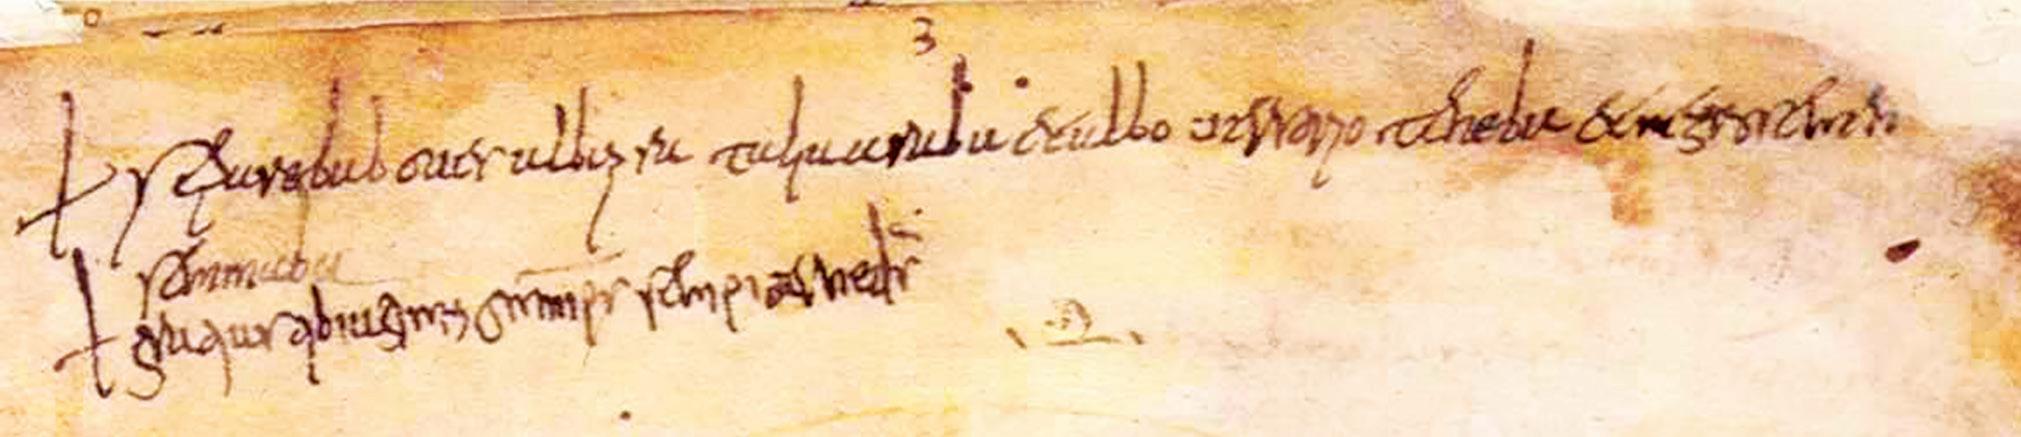 3
+ se pareba boves alba pratalia araba & albo versorio teneba & negro semen
seminaba
+ gratias tibi agimus omnip̄s sempiterne d̄s